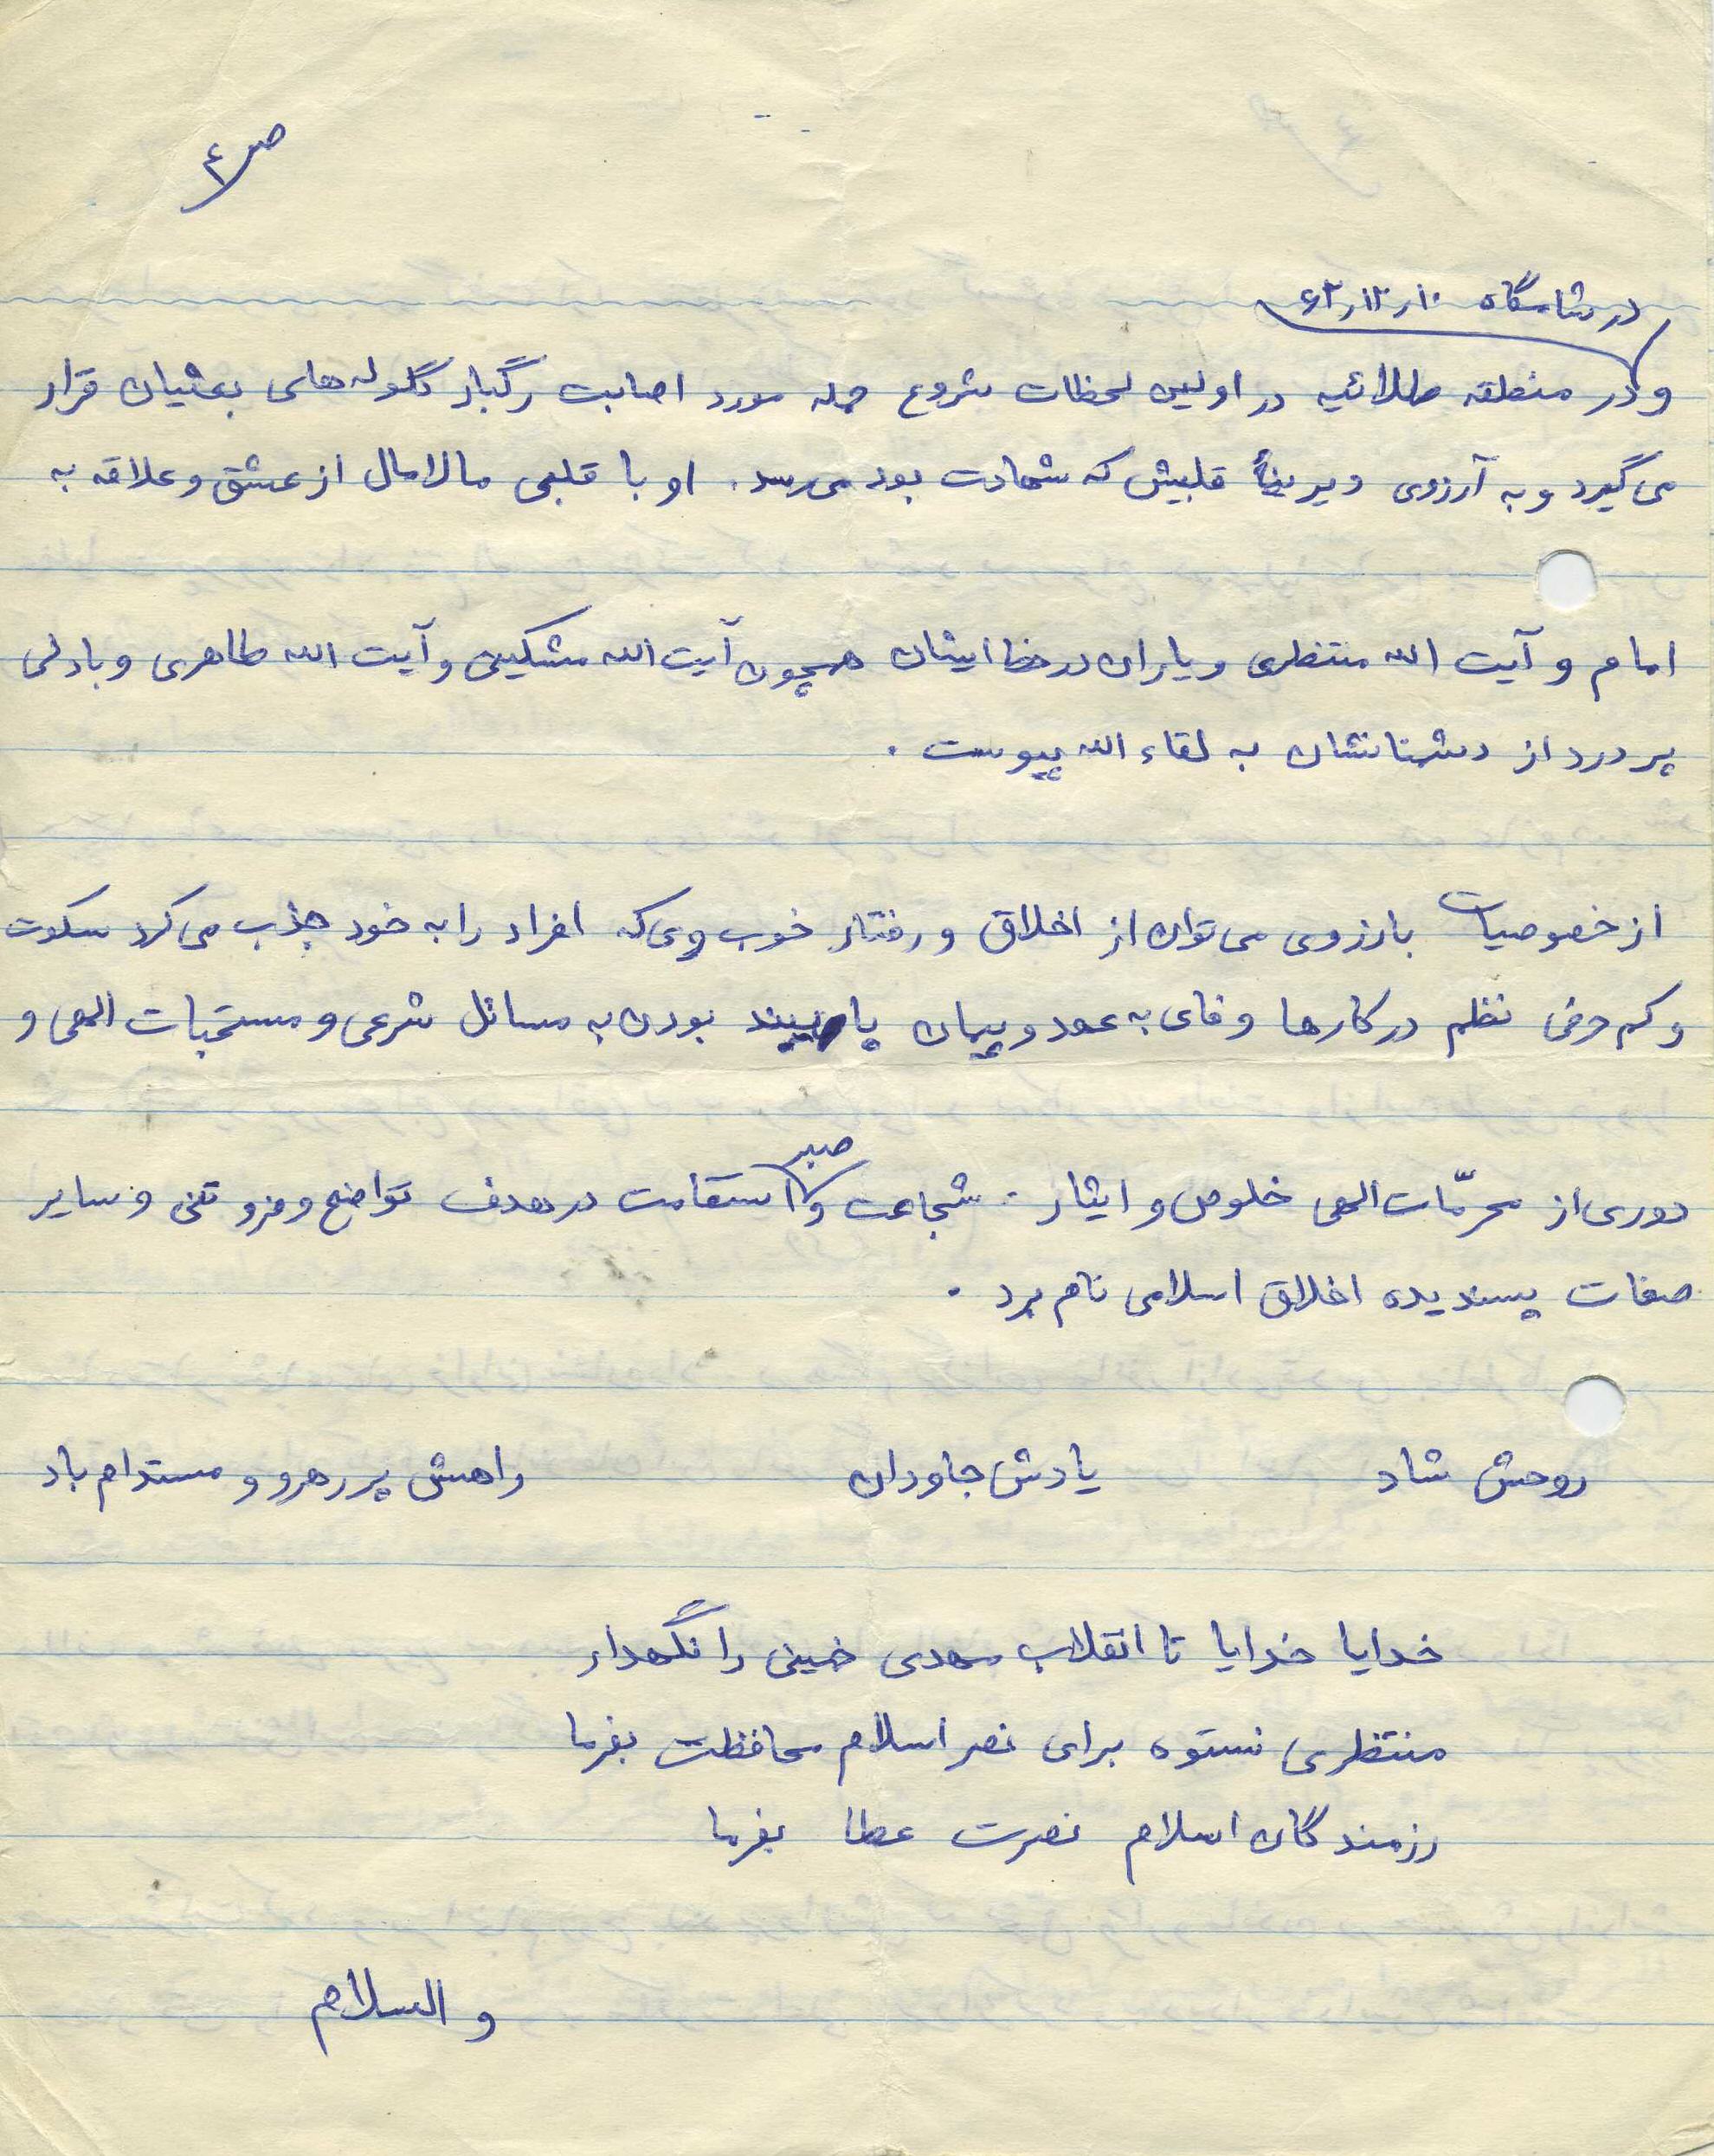 ص ۴
در شامگاه ۱۰ر۱۲ر۶۲
و در منطقه طلائیه در اولین لحظات شروع حمله مورد اصابت رگبار گلوله‌های بعثیان قرار
می‌گیرد و به آرزوی دیرینهٔ قلبیش که شهادت بود می‌رسد. او با قلبی مالامال از عشق و علاقه به
امام و آیت الله منتظری و یاران در خط ایشان همچون آیت الله مشکینی و آیت الله طاهری و با دلی
پر درد از دشمنانشان به لقاء الله پیوست.
از خصوصیات بارز وی می‌توان از اخلاق و رفتار خوب وی که افراد را به خود جذب می‌کرد سکوت
و کم حرفی نظم در کارها وفای به عهد و پیمان پایبند بودن به مسائل شرعی و مستحبات الهی و
دوری از محرّمات الهی خلوص و ایثار. شجاعت و صبر استقامت در هدف تواضع و فروتنی و سایر
صفات پسندیده اخلاق اسلامی نام برد.
روحش شاد یادش جاودان راهش پر رهرو و مستدام باد
خدایا خدایا تا انقلاب مهدی خمینی را نگهدار
منتظری نستوه برای نصر اسلام محافظت بفرما
رزمندگان اسلام نصرت عطا بفرما
والسلام